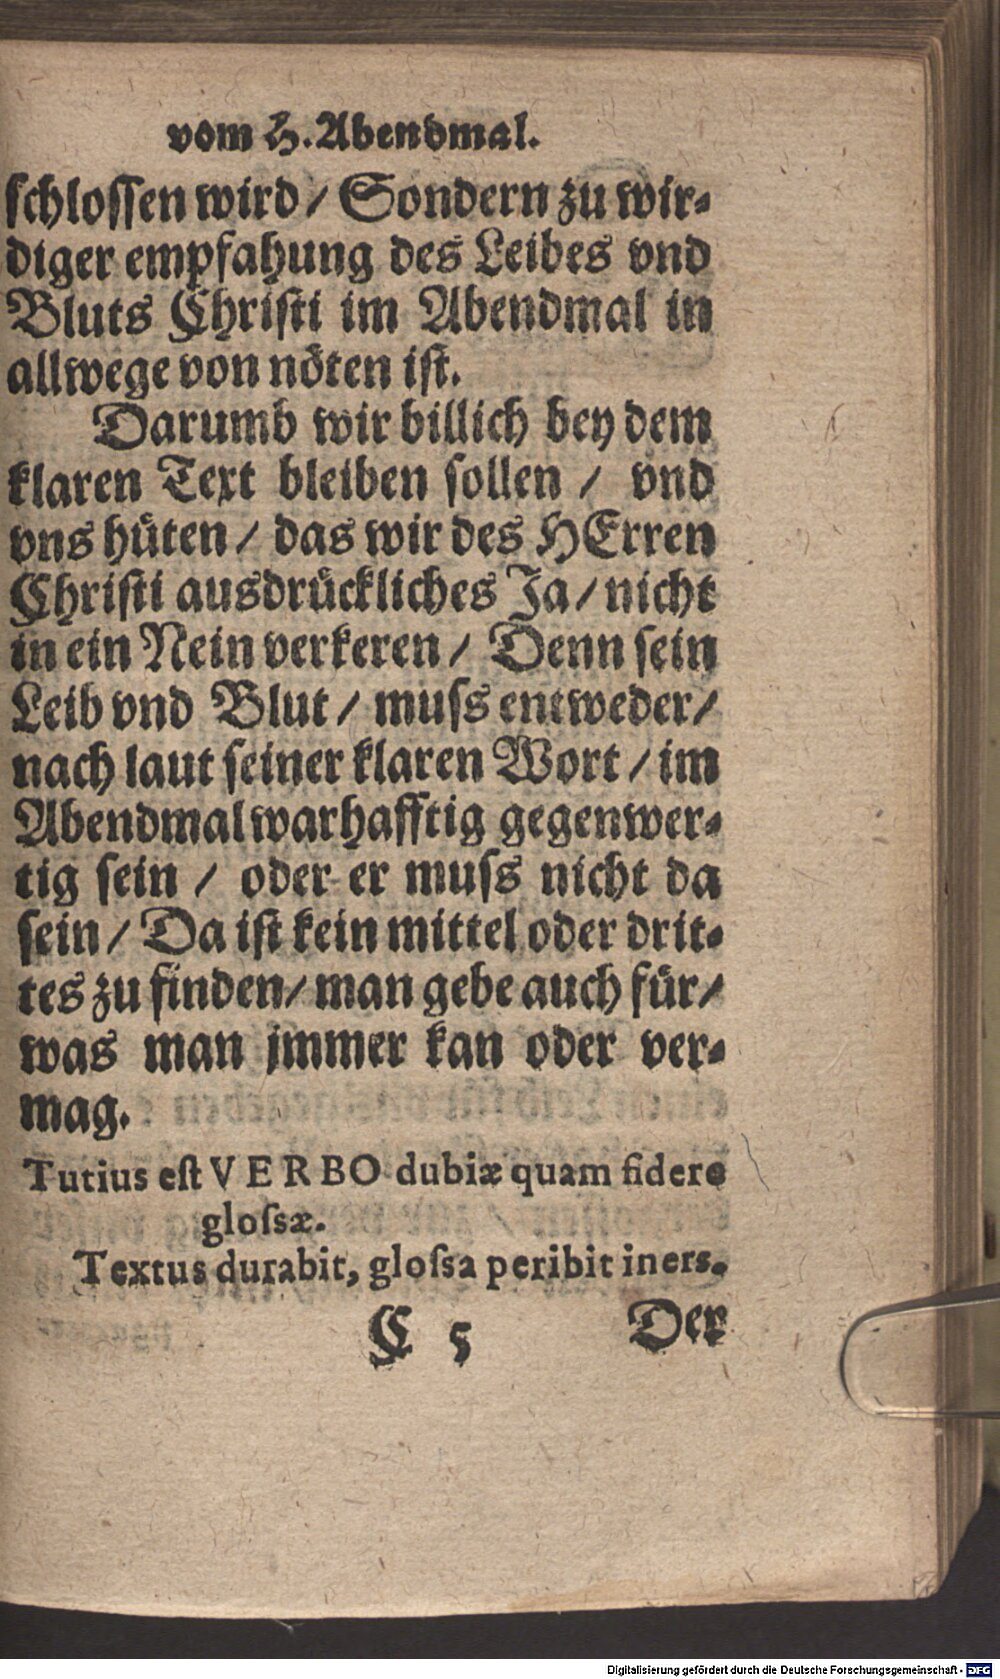 vom H. Abendmal.
ſchloſſen wird / Sondern zu wir⸗
diger empfahung des Leibes vnd
Bluts Chriſti im Abendmal in
allwege von nöten iſt.
Darumb wir billich bey dem
klaren Text bleiben ſollen / vnd
vns hüten / das wir des HErren
Chriſti ausdrückliches Ja / nicht
in ein Nein verkeren / Denn ſein
Leib vnd Blut / muſs entweder /
nach laut ſeiner klaren Wort / im
Abendmal warhafftig gegenwer⸗
tig ſein / oder er muſs nicht da
ſein / Da iſt kein mittel oder drit⸗
tes zu finden / man gebe auch für /
was man jmmer kan oder ver⸗
mag.
Tutius eſt VERBO dubiæ quam fidere
gloſsæ.
Textus durabit, gloſsa peribit iners.
C 5 Der
Digitalisierung gefördert durch die Deutsche Forschungsgemeinschaft - DFG